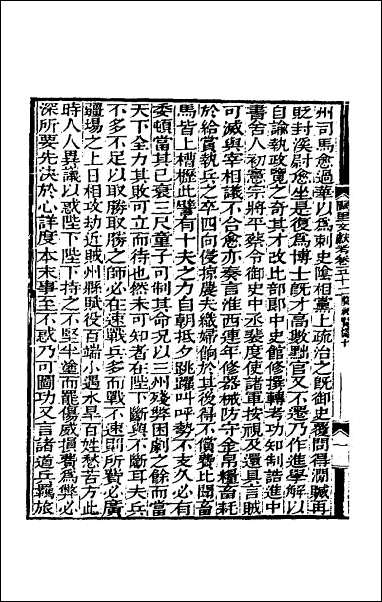 州司馬愈過華以爲刺史陰相黨上疏治之旣御史覆問得澗贓再
貶封溪尉愈坐是復爲博士旣才高數黜官又不遷乃作進學解以
自諭執政覽之奇其才改比部郞中史館修撰轉考功知制誥進中
書舍人初憲宗將平蔡命御史中丞裴度使諸軍按視及還具言賊
可滅與宰相議不合愈亦奏言淮西連年修器械防守金帛糧畜耗
於給賞執兵之卒四向侵掠農夫織婦餉於其後得不償費比聞畜
馬皆上槽櫪此譬有十夫之力自朝抵夕跳躍叫呼勢不支久必自
委頓當其已衰三尺童子可制其命况以三州殘弊困劇之餘而當
天下全力其敗可立而待也然未可知者在陛下斷與不斷耳夫兵
不多不足以取勝取勝之師必在速戰兵多而戰不速則所費必廣
疆場之上日相攻劫近賊州縣賦役百端小遇水旱百姓愁苦方此
時人人異議以惑陛下陛下持之不堅半塗而罷傷威損費爲弊必
深所要先決於心詳度本末事至不惑乃可圖功又言諸道兵羈旅